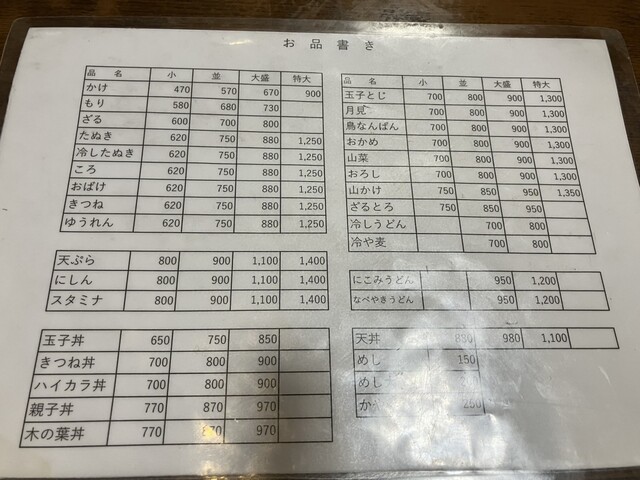 お品書き
品 名 小 並 大盛 特大
かけ 470 570 670 900
もり 580 680 730
ざる 600 700 800
たぬき 620 750 880 1,250
冷したぬき 620 750 880 1,250
ころ 620 750 880 1,250
おばけ 620 750 880 1,250
きつね 620 750 880 1,250
ゆうれん 620 750 880 1,250
天ぷら 800 900 1,100 1,400
にしん 800 900 1,100 1,400
スタミナ 800 900 1,100 1,400
玉子丼 650 750 850
きつね丼 700 800 900
ハイカラ丼 700 800 900
親子丼 770 870 970
木の葉丼 770 870 970
品 名 小 並 大盛 特大
玉子とじ 700 800 900 1,300
月見 700 800 900 1,300
鳥なんばん 700 800 900 1,300
おかめ 700 800 900 1,300
山菜 700 800 900 1,300
おろし 700 800 900 1,300
山かけ 750 850 950 1,350
ざるとろ 750 850 950
冷しうどん 700 800
冷や麦 700 800
にこみうどん 950 1,200
なべやきうどん 950 1,200
天丼 880 980 1,100
めし 150
めし